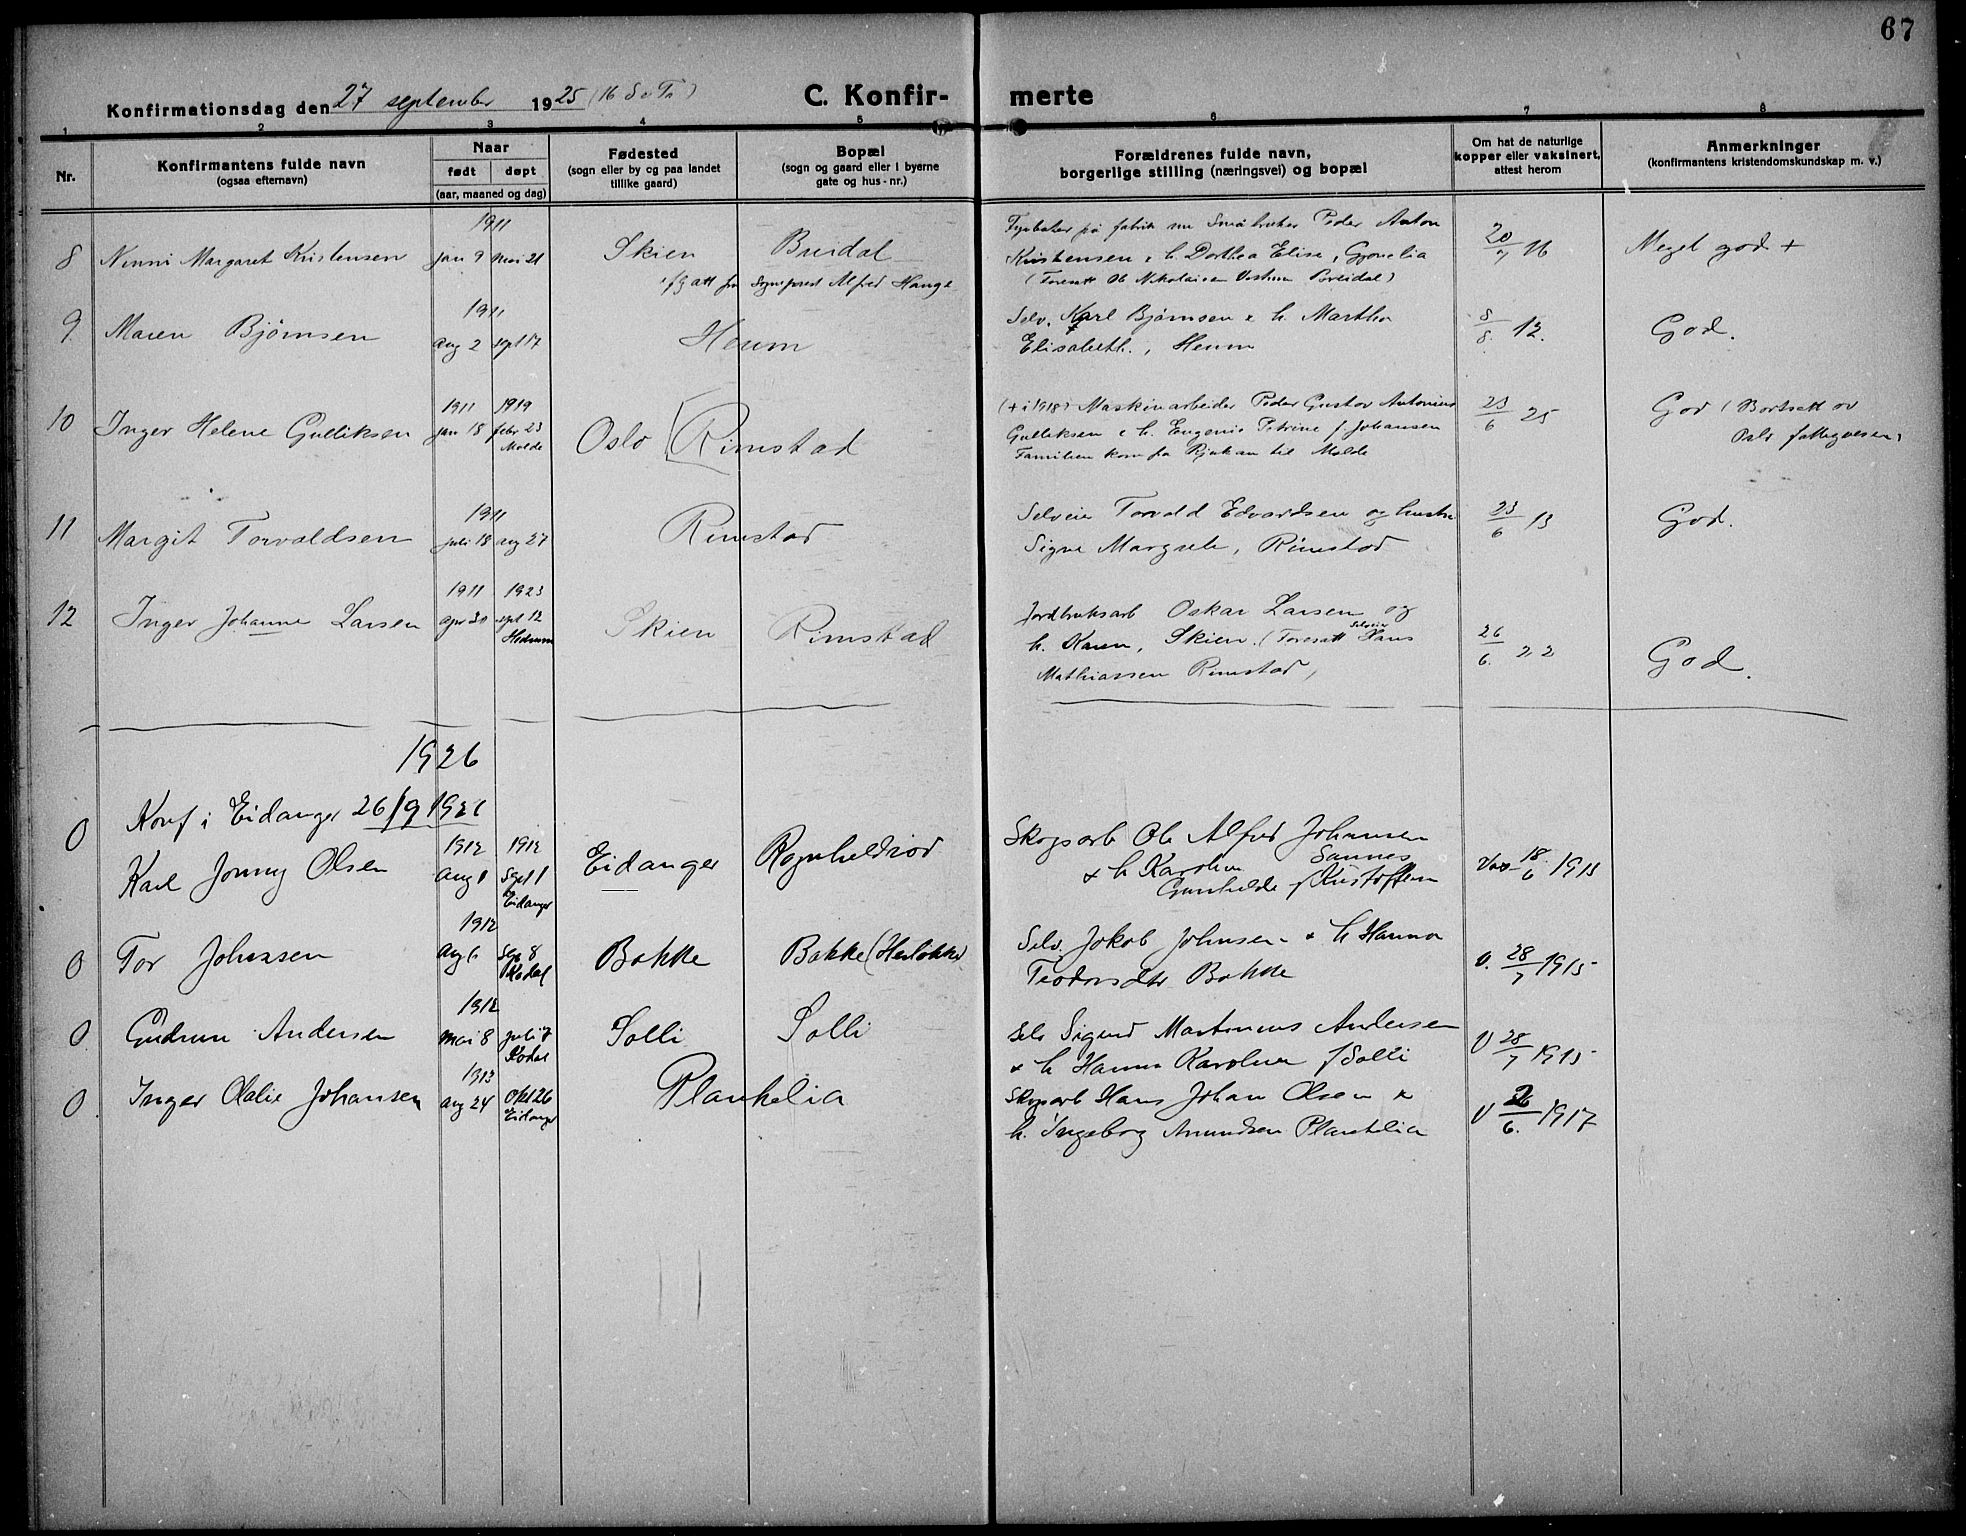 67
Konfirmationsdag den 27 september 1925 (16 S e Tr)
C. Konfir- merte
1 2 3 4 5 6 7 8
Nr.
Konfirmantens fulde navn
(ogsaa efternavn)
Naar
født døpt
(aar, maaned og dag)
Fødested
(sogn eller by og paa landet
tillike gaard)
Bopæl
(sogn og gaard eller i byerne
gate og hus-nr.)
Forældrenes fulde navn,
borgerlige stilling (næringsvei) og bopæl
Om hat de naturlige
kopper eller vaksinert,
attest herom
Anmerkninger
(konfirmantens kristendomskundskap m. v.)
1911
8 Ninni Margaret Kristensen jan 9 mai 21 Skien Breidal
att fra Sogneprest Alfred Hauge
Fyrbøter på fabrik nu Småbruker Peder Anton
Kristensen & h. Dorthea Elise, Gjønelia
(Foresatt Ole Nikolaisen Vestum Breidal)
20/7 16 Meget god +
1911
9. Maren Bjørnsen aug 2 sept 17 Heum
Selv. Karl Bjørnsen & h. Martha
Elisabeth., Heum
8/8. 12. God.
1911 1919
10 Inger Helene Gulliksen jan 18 febr 23 Molde Oslo Rimstad
(+ i 1918) Maskinarbeider Peder Gustav Antonius
Gulliksen & h. Eugenie Petrine f. Johansen
Familien kom fra Rjukan til Molde
23/6 25 God (Bortsatt av
Oslo fattigvesen)
1911
11 Margit Torvaldsen juli 18 aug 27 Rimstad
Selveier Torvald Edvardsen og hustru
Signe Margrete, Rimstad
23/6 13 God.
1911 1923
12 Inger Johanne Larsen apr 30 sept 12 Hedrum Skien Rimstad
Jordbruksarb Oskar Larsen og
h. Karen, Skien. (Foresatt Selveier Hans
Mathiassen Rimstad,
26/6. 22 God.
1926
Konf i Eidanger 26/9 1926
1912 1912
0 Karl Jonny Olsen Aug 1 Sept 1 Eidanger Eidanger Rognheldrød
Skogsarb Ole Alfred Johannsen
Sannes
& h Karoline
Gunhilde f Kristoffersen
Vax 18/6 1913
1912
0 Tor Johnsen Aug 6 Sep 8 Kodal Bakke Bakke (Herløkke)
Selv. Jakob Johnsen & h Hanna
Teodorsdtr Bakke
v. 28/7 1915
1912
0 Gudrun Andersen mai 8 juli 7 Kodal Solli Solli
Selv Sigurd Martinius Andersen
& h Hanna Karoline f Solli
V 28/7 1915
1913
0. Inger Olalie Johansen aug 24 Okt 26 Eidanger Plankelia
Skogsarb Hans Johan Olsen &
h. Ingeborg Amundsen Plankelia
V 26/6. 1917